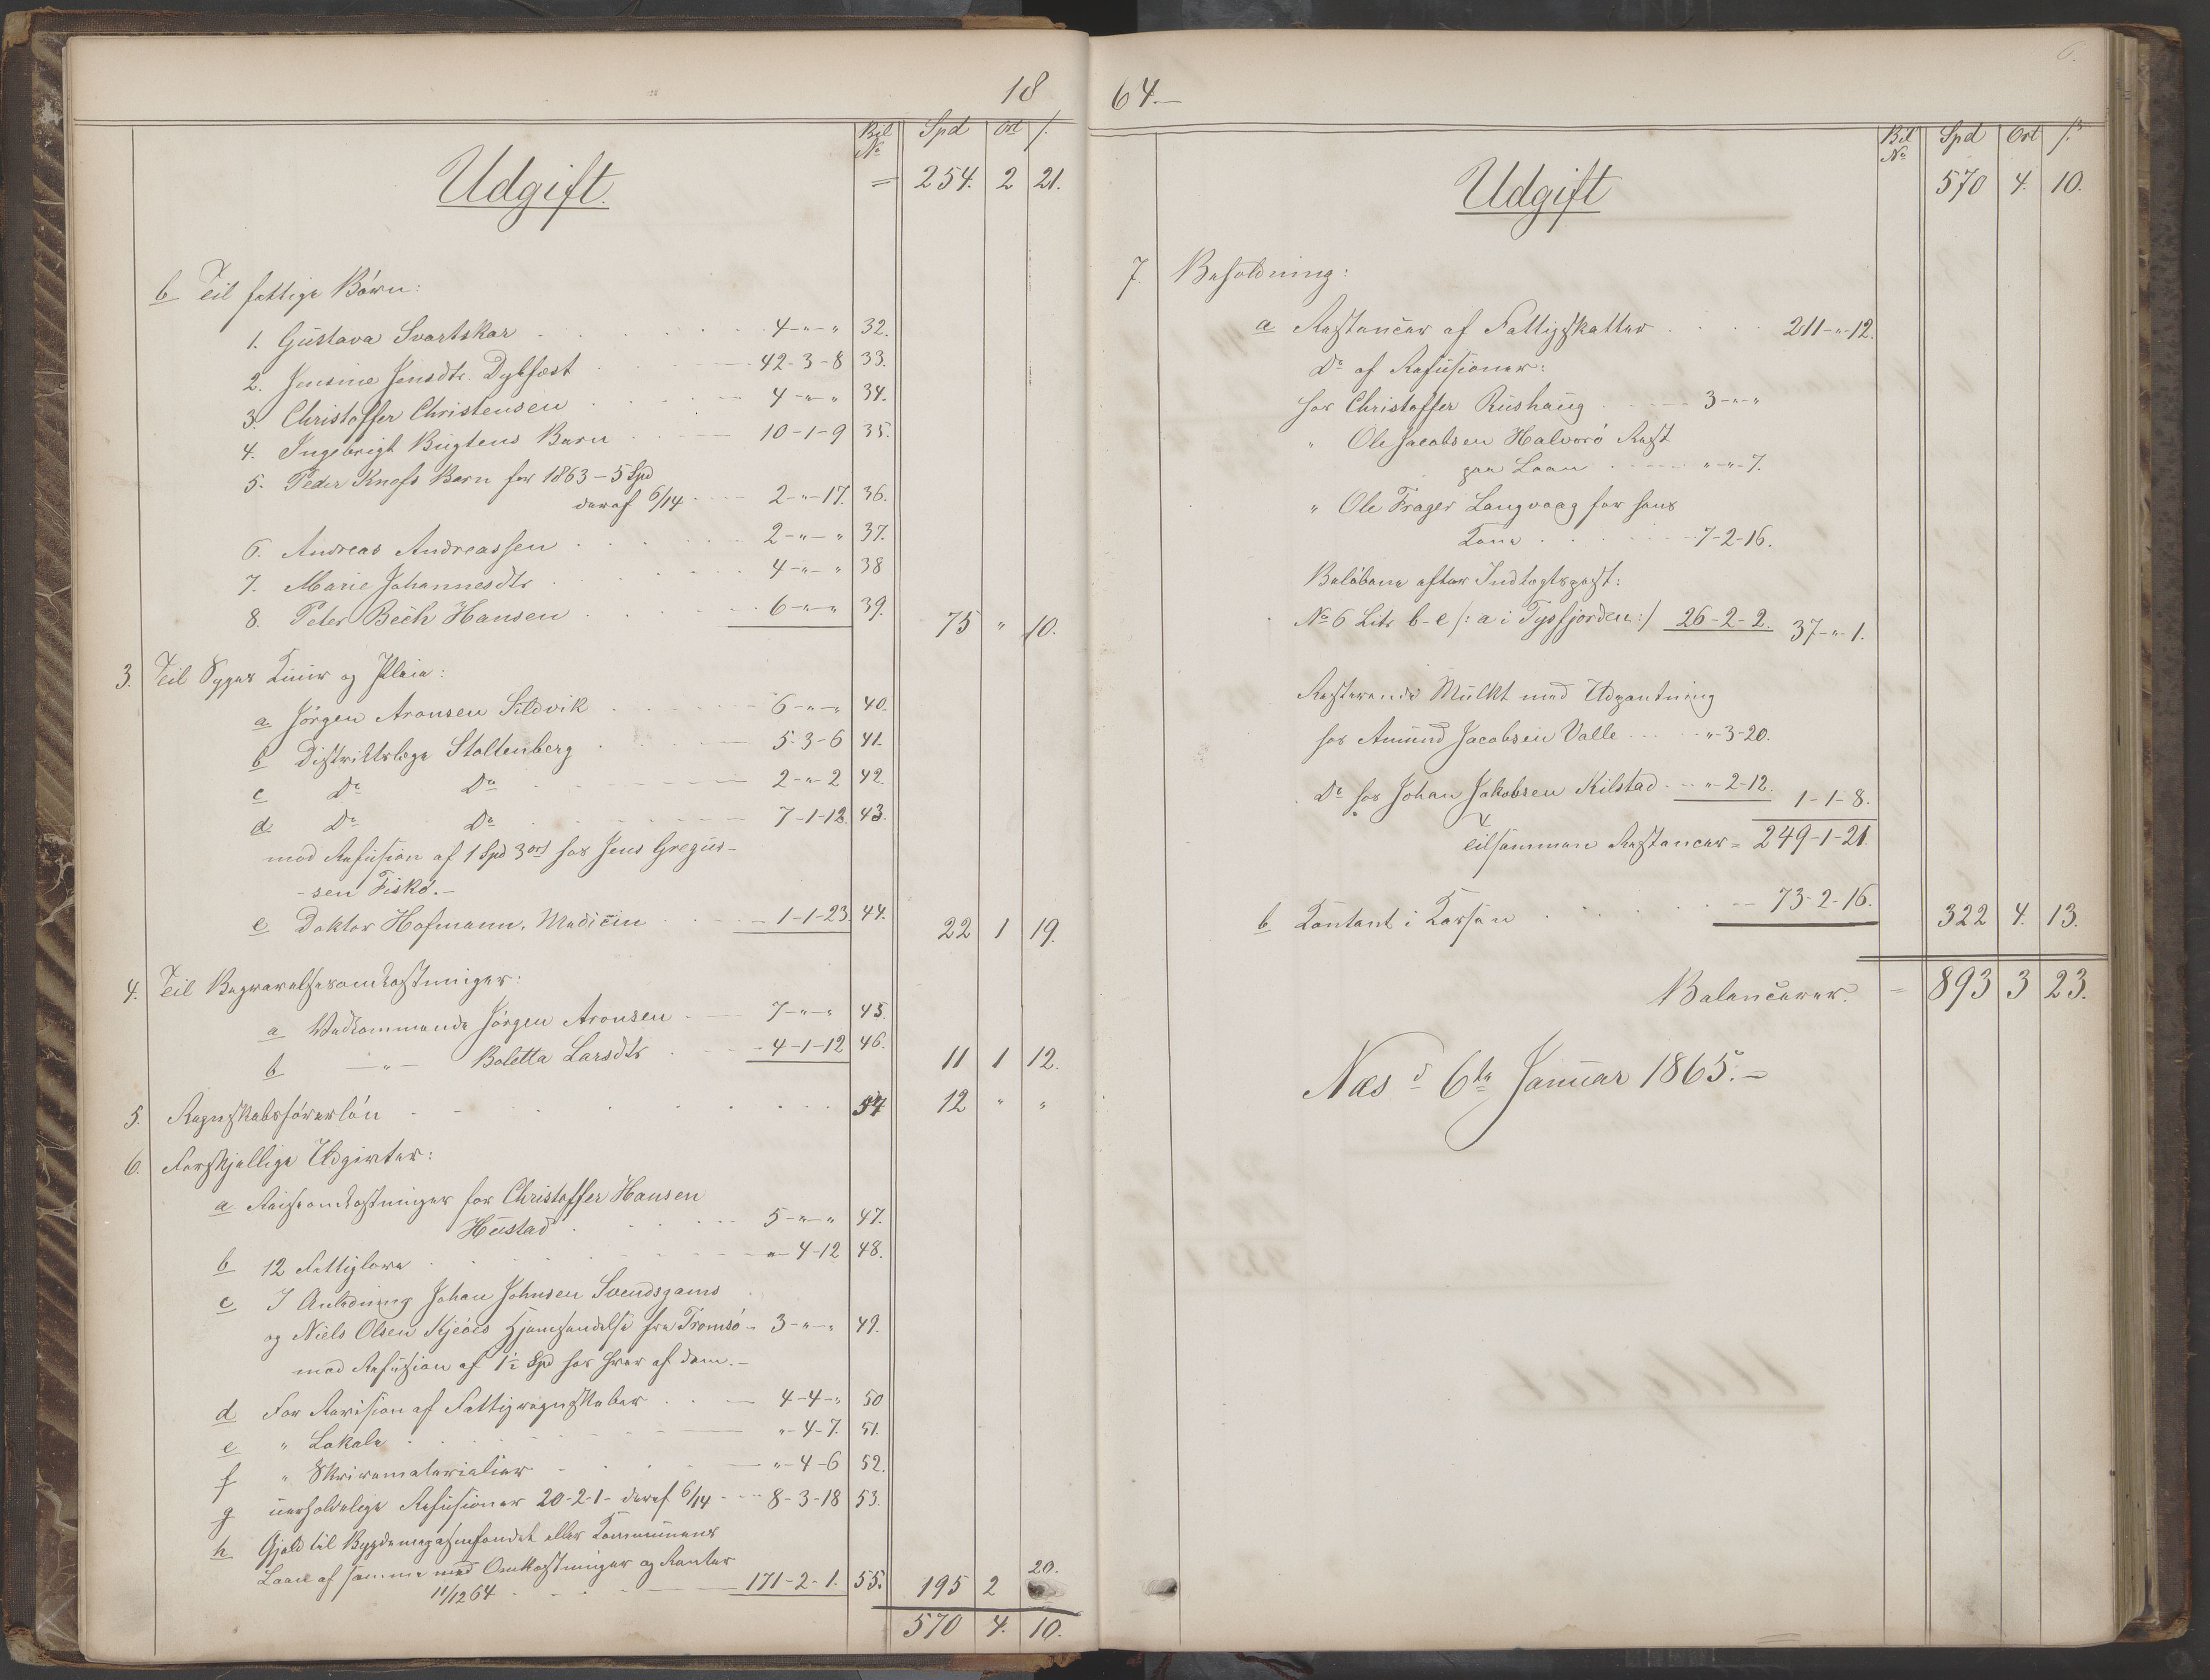 18
Bil No Spd Ort s.
Udgift. = 254. 2 21.
b Til fattige Börn:
1. Gustava Svartskar 4-"-" 32.
2. Jensine Jensdtr. Dybfæst 42-3-8 33.
3. Christoffer Christensen 4-"-" 34.
4. Ingebrigt Bugtens Barn 10-1-9 35.
5. Peder Knofs Barn for 1863 - 5 Spd
deraf 6/14 2-"-17. 36.
6. Andreas Andreassen 2-"-" 37.
7. Marie Johannesdtr 4-"-" 38
8. Peter Bech Hansen 6-"-" 39. 75 " 10.
3. Til Syges Kuur og Pleie:
a Jörgen Aronsen Sildvik 6-"-" 40.
b Distriktslæge Stoltenberg 5-3-6 41.
c Do Do 2-"-2 42.
d Do Do 7-1-12 43.
mod Refusion af 1 Spd 3 ort hos Jens Gregus-
-sen Fiskö.-
e Doktor Hofmann, Medicin 1-1-23. 44. 22 1 19.
4. Til Begravelsesomkostninger:
a Vedkommende Jörgen Aronsen 7-"-" 45.
b -"- Boletta Larsdtr 4-1-12 46. 11 1 12.
5. Regnskabsförerlön 54 12 " "
6. Forskjellige Udgivter:
a Reiseomkostninger for Christoffer Hansen
Hustad 5-"-" 47.
b 12 Fattiglove "-4-12 48.
c I Anledning Johan Johnsen Svendsgams
og Niels Olsen Kjeöes Hjemsendelse fra Tromsö - 3-"-" 49.
mod Refusion af 1½ Spd hos hver af dem.-
d For Revision af Fattigregnskaber 4-4-" 50
e " Lokale "-4-7. 51.
f " Skrivematerialier "-4-6 52.
g uerholdelige Refusioner 20-2-1- deraf 6/14 8-3-18 53.
h Gjæld til Bygdemagasinfondet eller Kommunens
Laan af samme med Omkostninger og Renter
11/12 64 171-2-1. 55. 195 2 20.
570 4. 10.
64.-
6.
Bil No Spd Ort s.
Udgift 570 4. 10.
7. Beholdning:
a Restancer af Fattigskatter 211-"-12.
Do af Refusioner:
hos Christoffer Rushaug 3-"-"
" Ole Jacobsen Halvorö Rest
paa Laan "-"-7.
" Ole Frager Langvaag for hans
Kone 7-2-16.
Belöbene efter Indtægtspost:
No 6 Litr b-e /: a i Tysfjorden :/ 26-2-2. 37-"-1.
Resterende Mulkt med Udpantning
hos Amund Jacobsen Valle "-3-20.
Do hos Johan Jakobsen Kilstad "-2-12. 1-1-8.
Tilsammen Restancer = 249-1-21.
b Kontant i Kassen 73-2-16. 322 4. 13.
Balancerer. = 893 3 23.
Næs d 6te Januar 1865.-